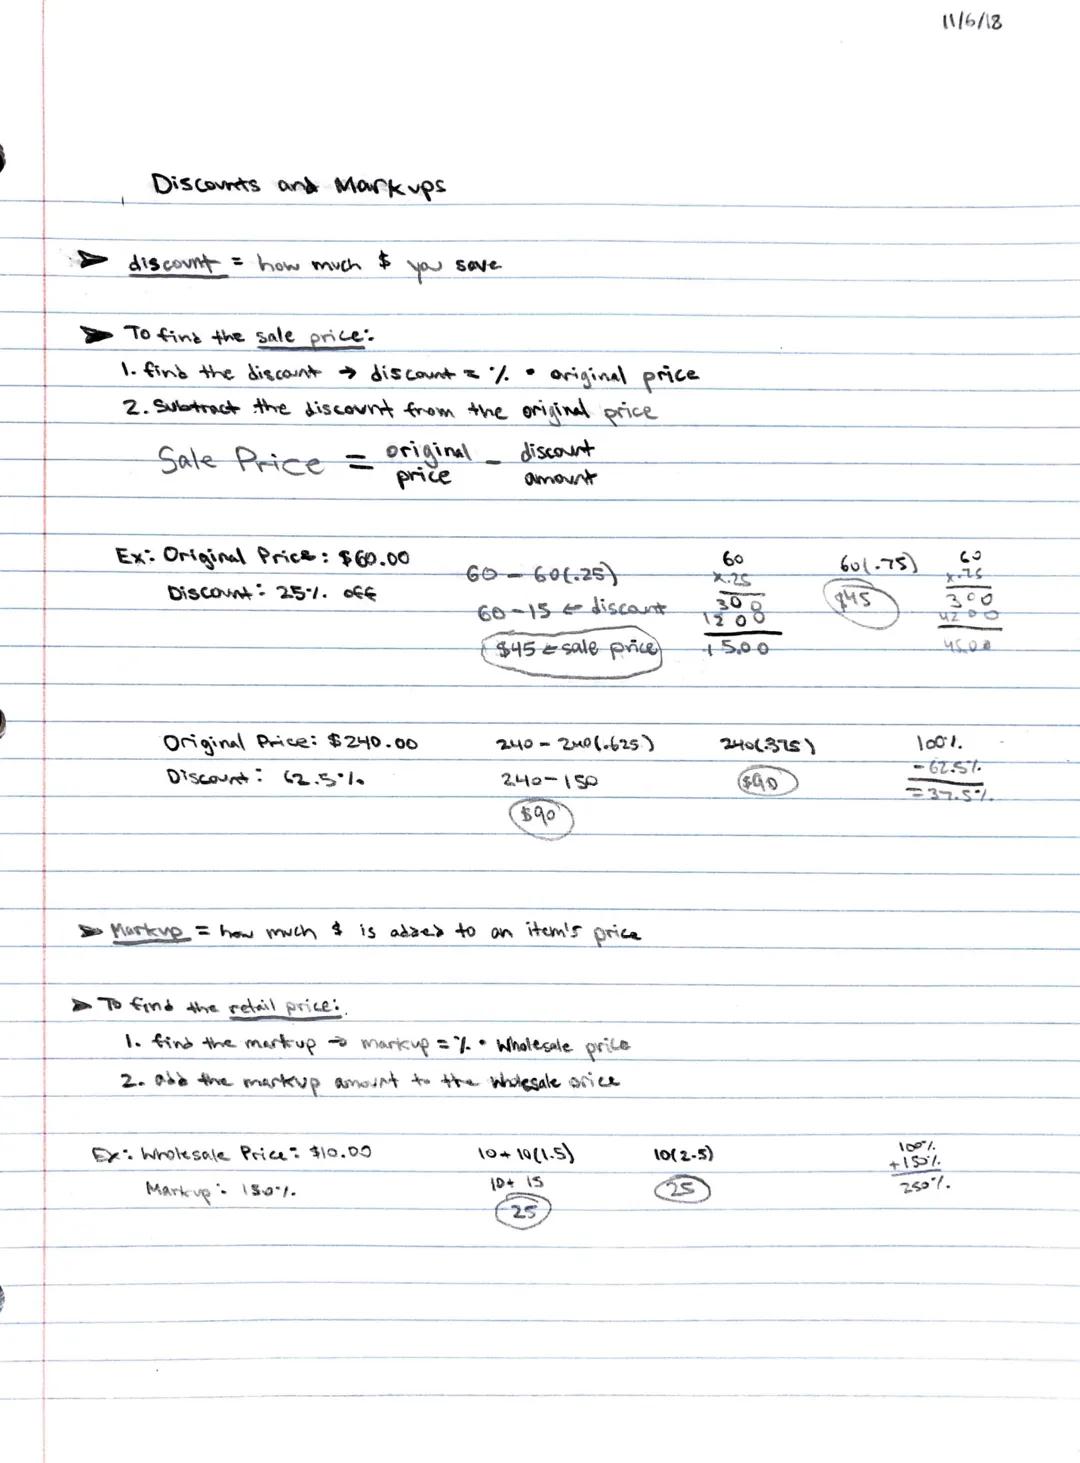 11/6/18
Discounts and Markups
➤ discount = how much $ you save
➤ To find the sale price:
1. find the discount → discount = % • original price
2. Subtract the discount from the original price
Sale Price = original price - discount amount
Ex: Original Price: $60.00
Discount: 25% off
60 - 60(.25)
60 - 15 ← discount
$45 ← sale price
60
x.25
300
1200
15.00
60(.75)
$45
60
x.75
300
4200
45.00
Original Price: $240.00
Discount: 62.5%
240 - 240(.625)
240 - 150
$90
240(.375)
$90
100%
- 62.5%
= 37.5%
➤ Markup = how much $ is added to an item's price
➤ To find the retail price:
1. find the markup → markup = % • Wholesale price
2. add the markup amount to the wholesale price
Ex: Wholesale Price: $10.00
Markup: 150%
10 + 10(1.5)
10 + 15
25
10(2.5)
25
100%
+ 150%
250%